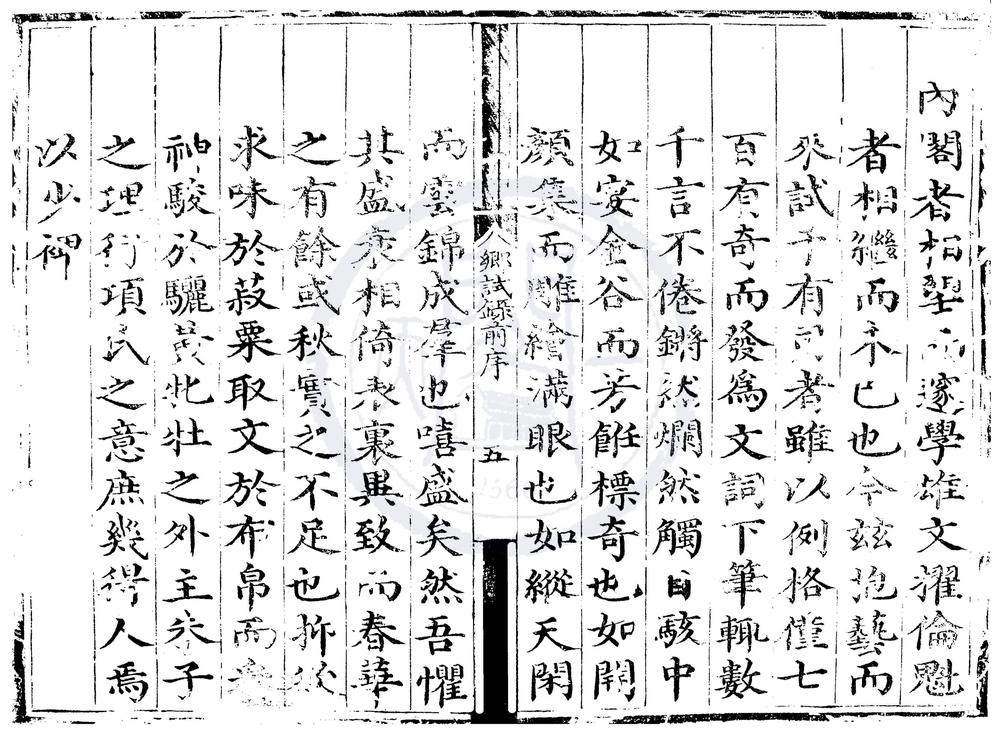 內閣者相望而邃學雄文擢倫魁
者相繼而不已也今茲抱藝而
來試于有司者雖以例格僅七
百有奇而發為文詞下筆輒數
千言不倦鏘然爛然觸目駭中
如宴金谷而芳飪標奇也如闢
顏集而雕繪滿眼也如縱天閑
鄉試錄前序 五
而雲錦成羣也嘻盛矣然吾懼
其盛衰相倚表裏異致而春華
之有餘或秋實之不足也抑欲
求味於菽粟取文於布帛而
神駿於驪黃牝牡之外主朱子
之理行項氏之意庶幾得人焉
以少裨